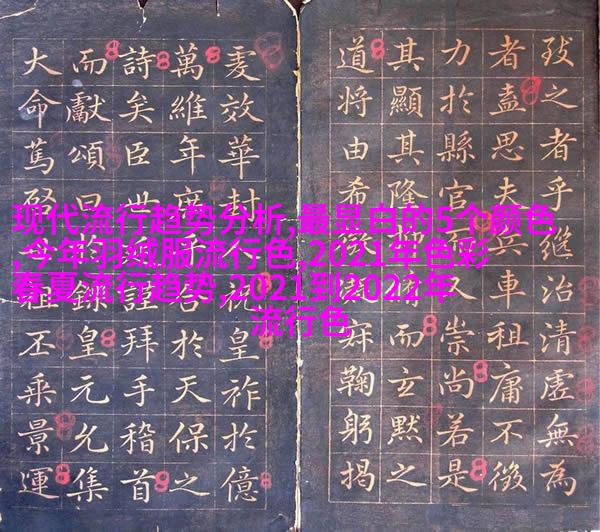 现代流行趋势分析,最显白的5个颜色
,今年羽绒服流行色,2021年色彩
春夏流行趋势,2021到2022年
流行色
致之者乎繼治清虛無為
者盍思夫兵車租庸不徵
力於縣官又崇尚若是
其顯其隆而玄默之
道將由希寐鞠躬揭
效華封祝皇祚於億
萬維年於天保之
詩矣臣世謹拜手稽首
而獻頌曰錄皇元允集
大命篤祖丕乘景運